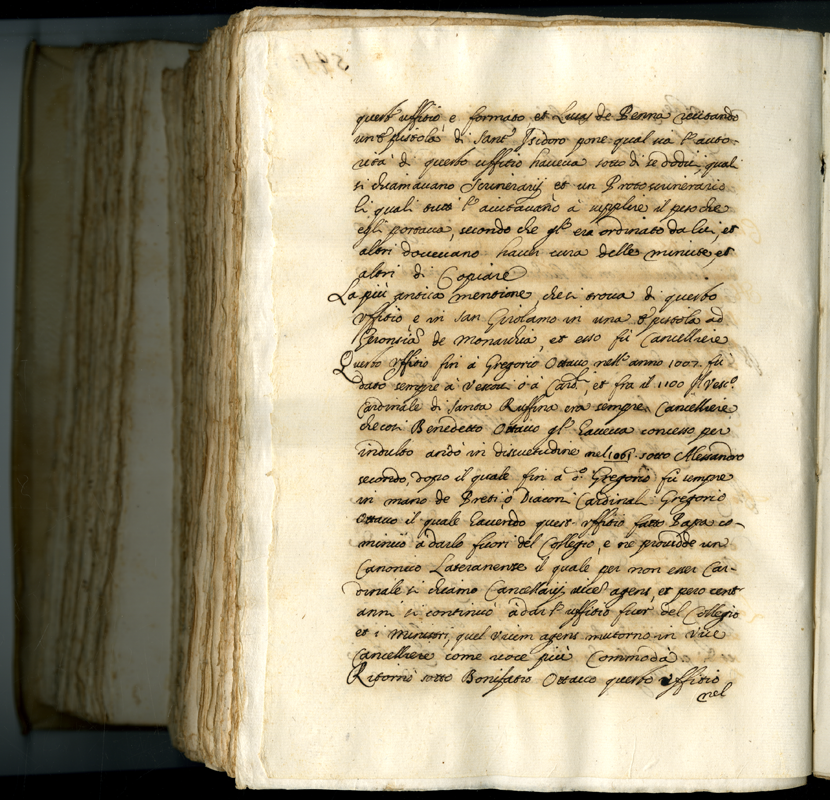 quest' uffitio e formato et Lucas de Penna recitando
un' Epistola di Sant' Isidoro pone qual sia l' auto-
rità di questo uffitio haveva sotto di se dodici, quali
si chiamavano Scrinerarij et un Protoscrinerario
li quali tutti l' aiutavano à supplire il peso che
egli portava, secondo che gl' era ordinato da lui, et
altri dovevano haver cura delle minute, et
altri di Copiare
La più antica mentione che si trova di questo
uffitio e in San Girolamo in una Epistola ad
Geronsià de Monarchia, et esso fù Cancelliere
Questo Uffitio fin à Gregorio Ottavo nell' anno 1007. fù
dato sempre à Vescovi ò à Card.li, et fra il 1100 il Vesc.o
Cardinale di Santa Ruffina era sempre Cancelliere
che così Benedetto Ottavo gl' haveva concesso per
indulto andò in disuetudine nel 1061 sotto Alessandro
secondo, dopo il quale fin a d.o Gregorio fù sempre
in mano de Preti, ò Diaconi Cardinali Gregorio
Ottavo il quale havendo quest' uffitio fatto Papa co-
minciò a darlo fuori del Collegio, e ne providde un
Canonico Lateranense il quale per non esser Car-
dinale si chiamò Cancellarij vices agens, et però cent'
anni si continuò a dar l' uffitio fuor del Collegio
et i ministri, quel vicem agens mutorno in Vice
Cancelliere come voce più Commoda
Ritornò sotto Bonifatio Ottavo questo uffitio
nel